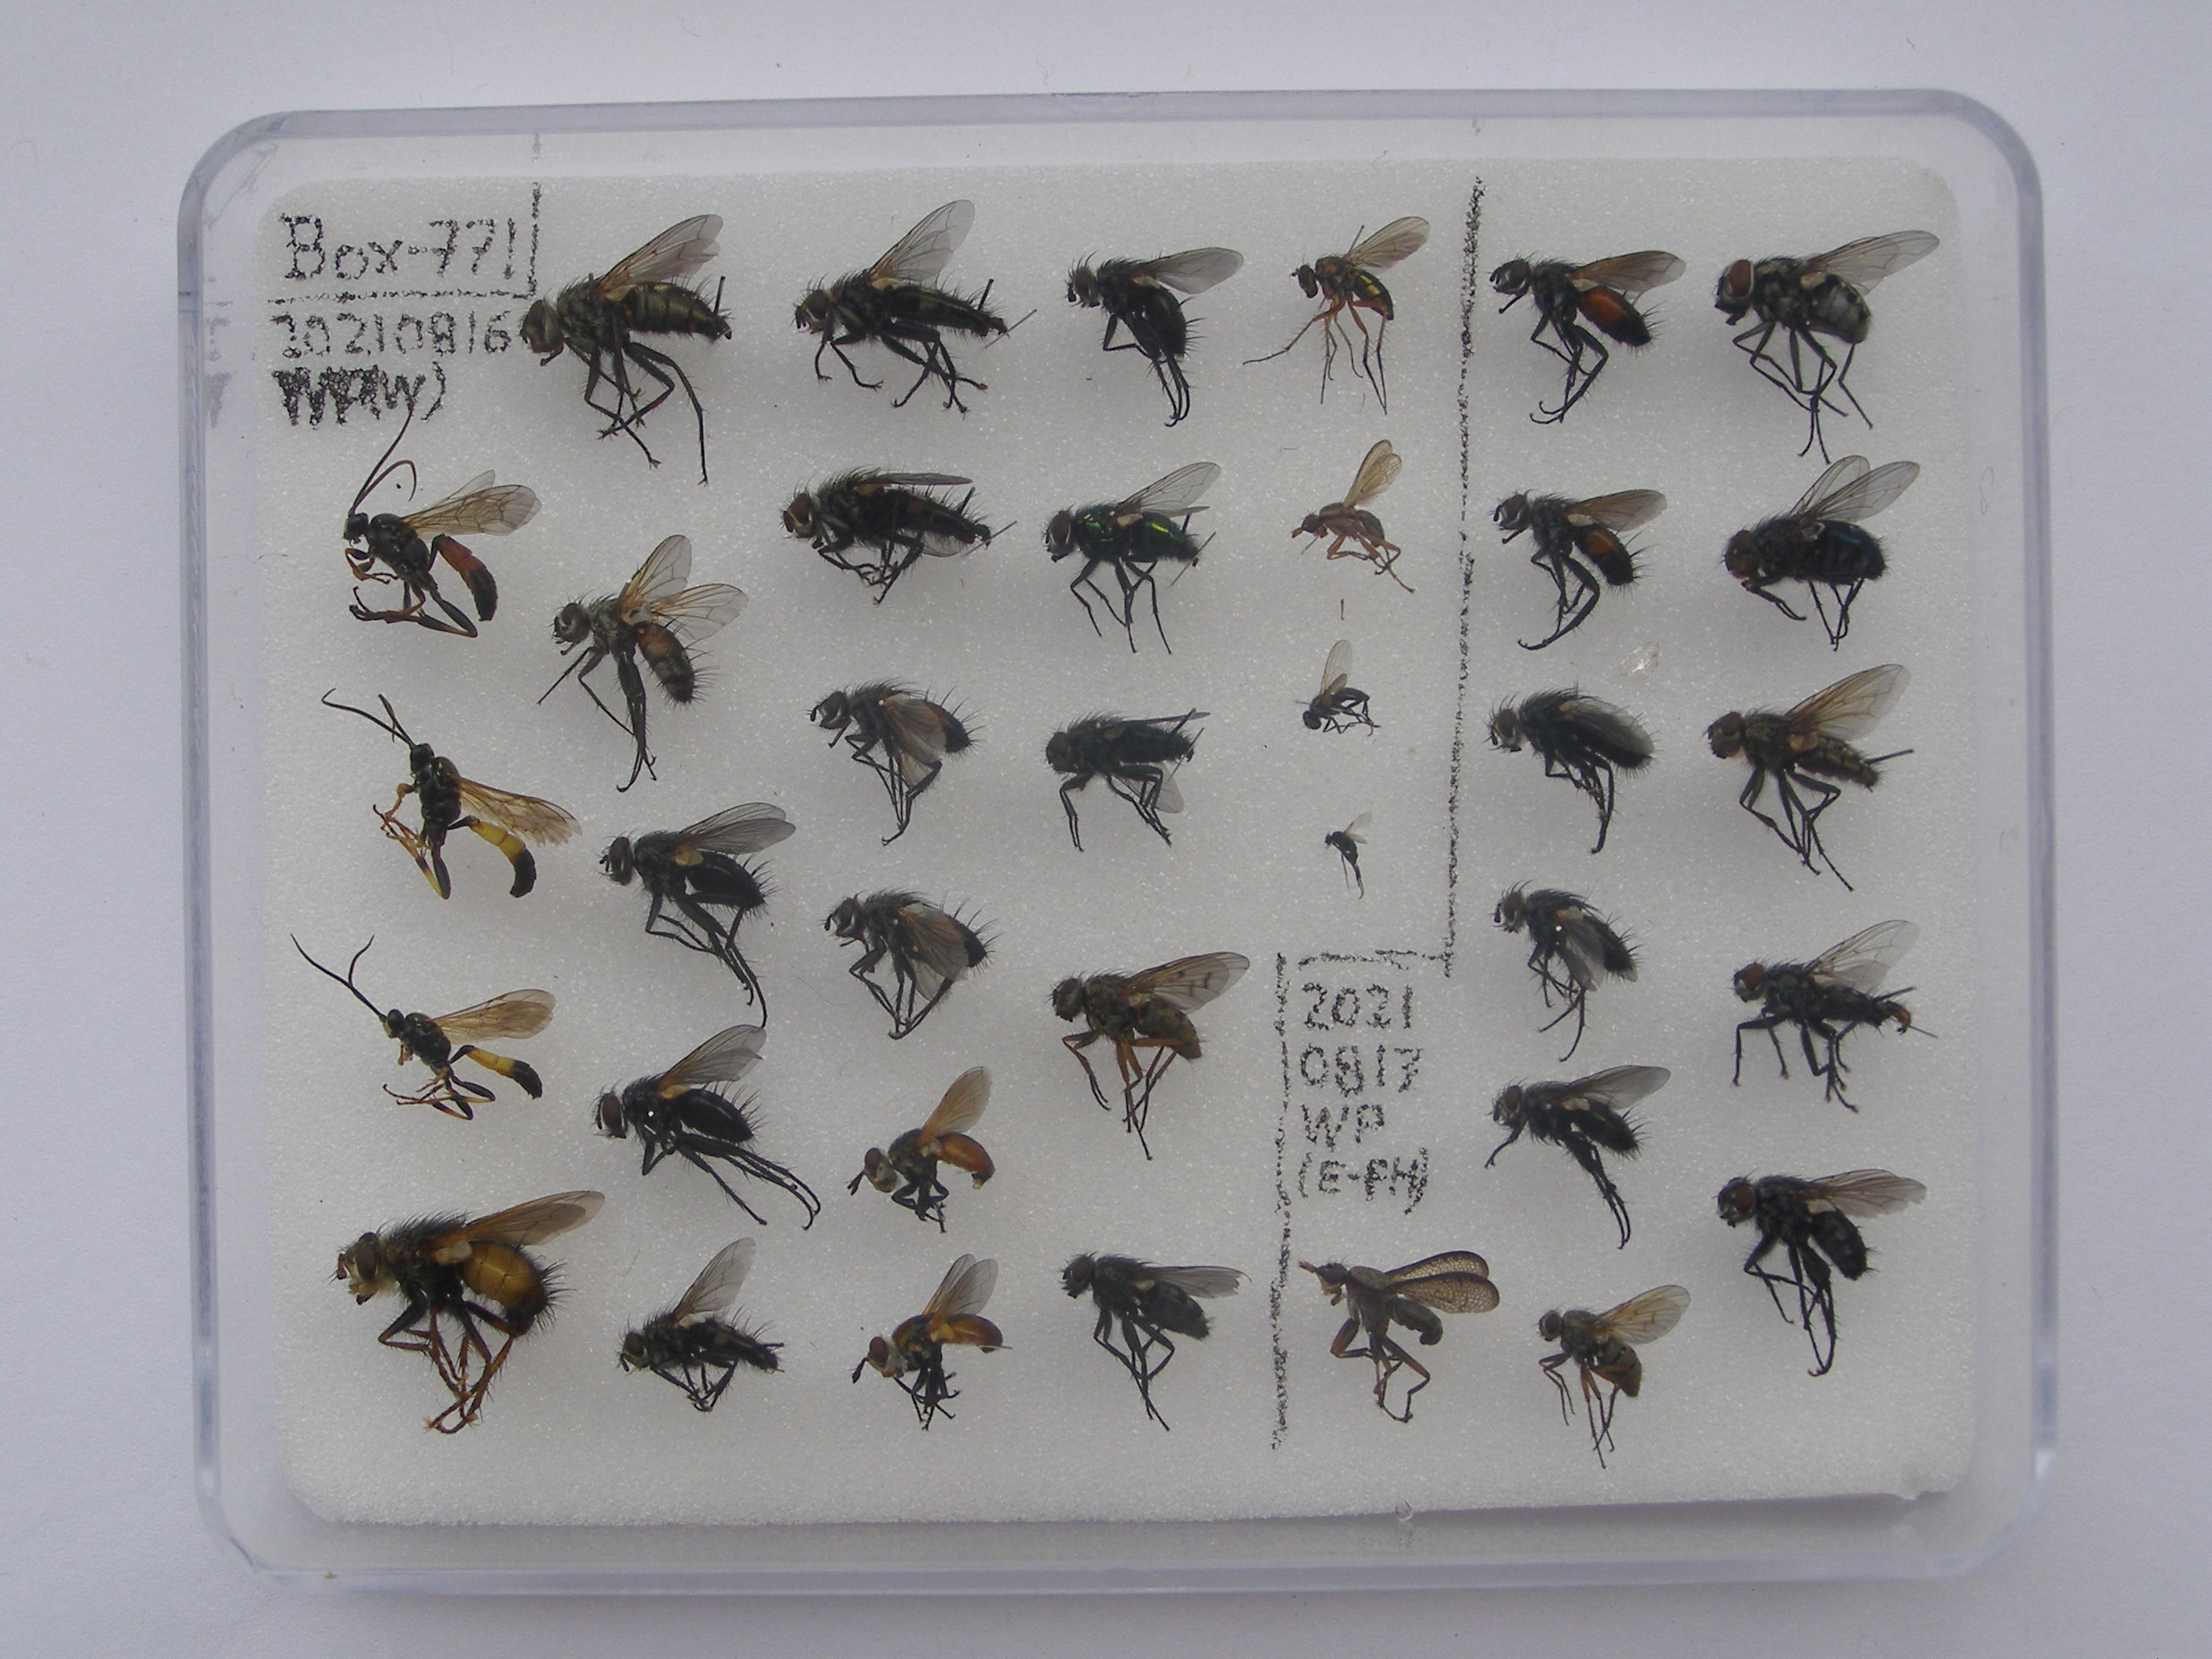 Box-771
20210816
2021
0817
WP
(E-FH)